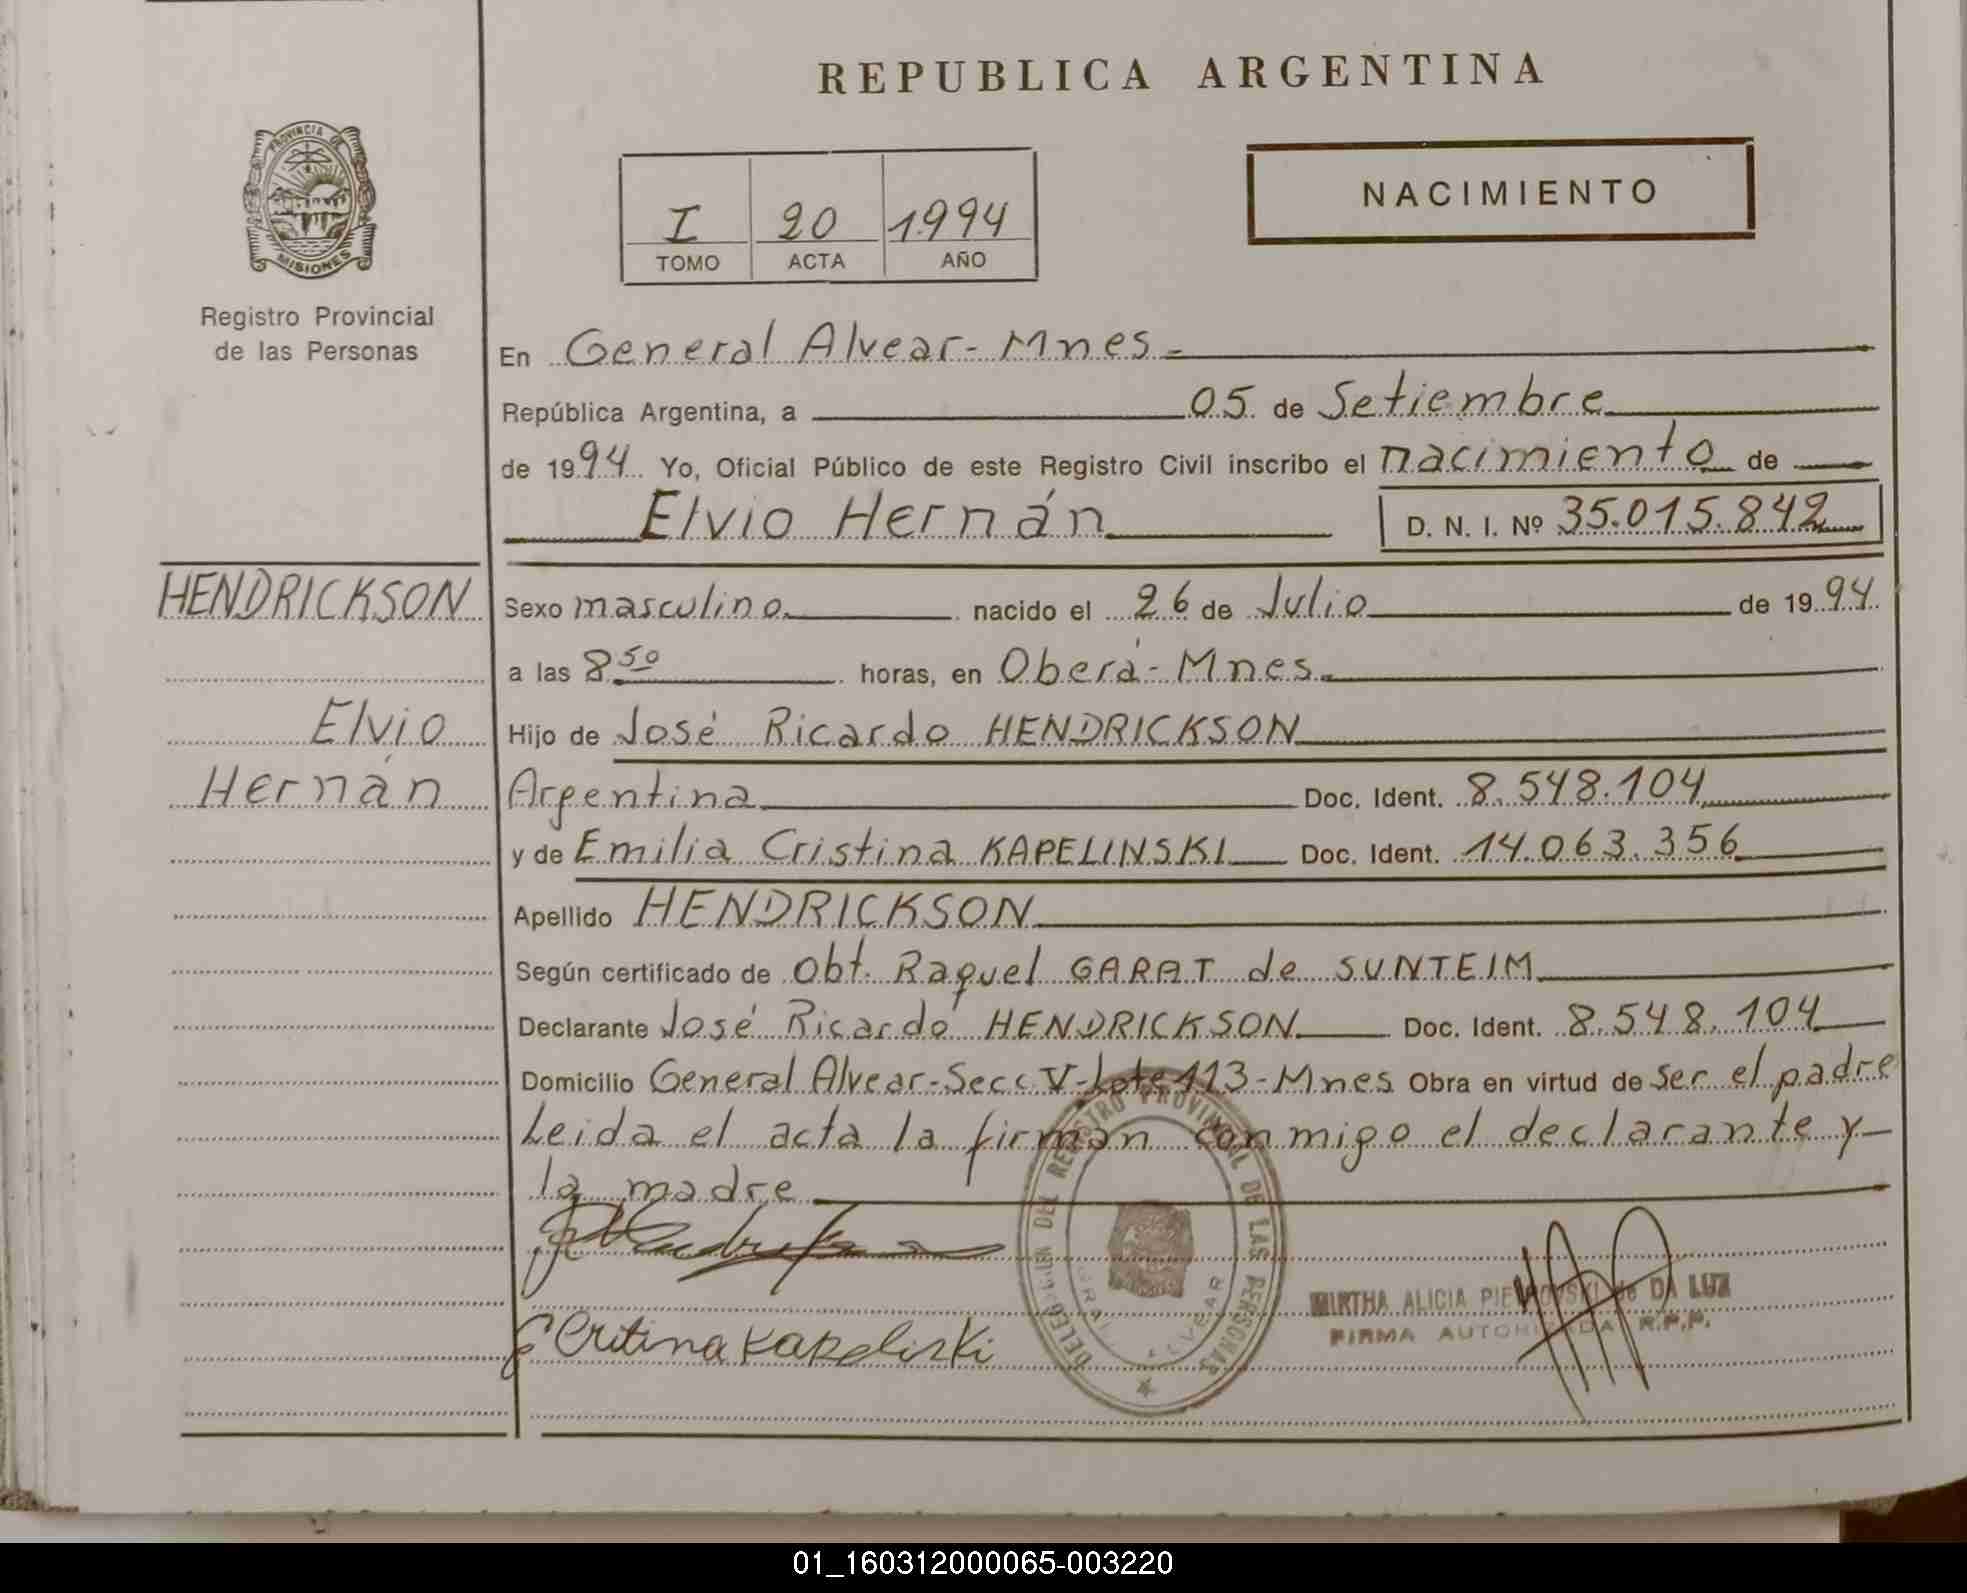 REPUBLICA ARGENTINA
PROVINCIA DE
MISIONES
Registro Provincial
de las Personas
I 20 1994
TOMO ACTA AÑO
NACIMIENTO
En General Alvear - Mnes.
República Argentina, a 05 de Setiembre
de 1994 Yo, Oficial Público de este Registro Civil inscribo el nacimiento de
Elvio Hernán D. N. I. Nº 35.015.842
HENDRICKSON
Elvio
Hernán
Sexo masculino nacido el 26 de Julio de 1994
a las 8 50 horas, en Oberá - Mnes.
Hijo de José Ricardo HENDRICKSON
Argentina Doc. Ident. 8.548.104
y de Emilia Cristina KAPELINSKI Doc. Ident. 14.063.356
Apellido HENDRICKSON
Según certificado de Obt. Raquel GARAT de SUNTEIM
Declarante José Ricardo HENDRICKSON Doc. Ident. 8.548.104
Domicilio General Alvear - Secc V - Lote 113 - Mnes Obra en virtud de ser el padre
Leida el acta la firman conmigo el declarante y
la madre
DELEGACION DEL REGISTRO PROVINCIAL DE LAS PERSONAS
GRAL ALVEAR
E Critina Kapeliski
MIRTHA ALICIA PIETROVSKI de DA LUZ
FIRMA AUTORIZADA R.P.P.
01_160312000065-003220